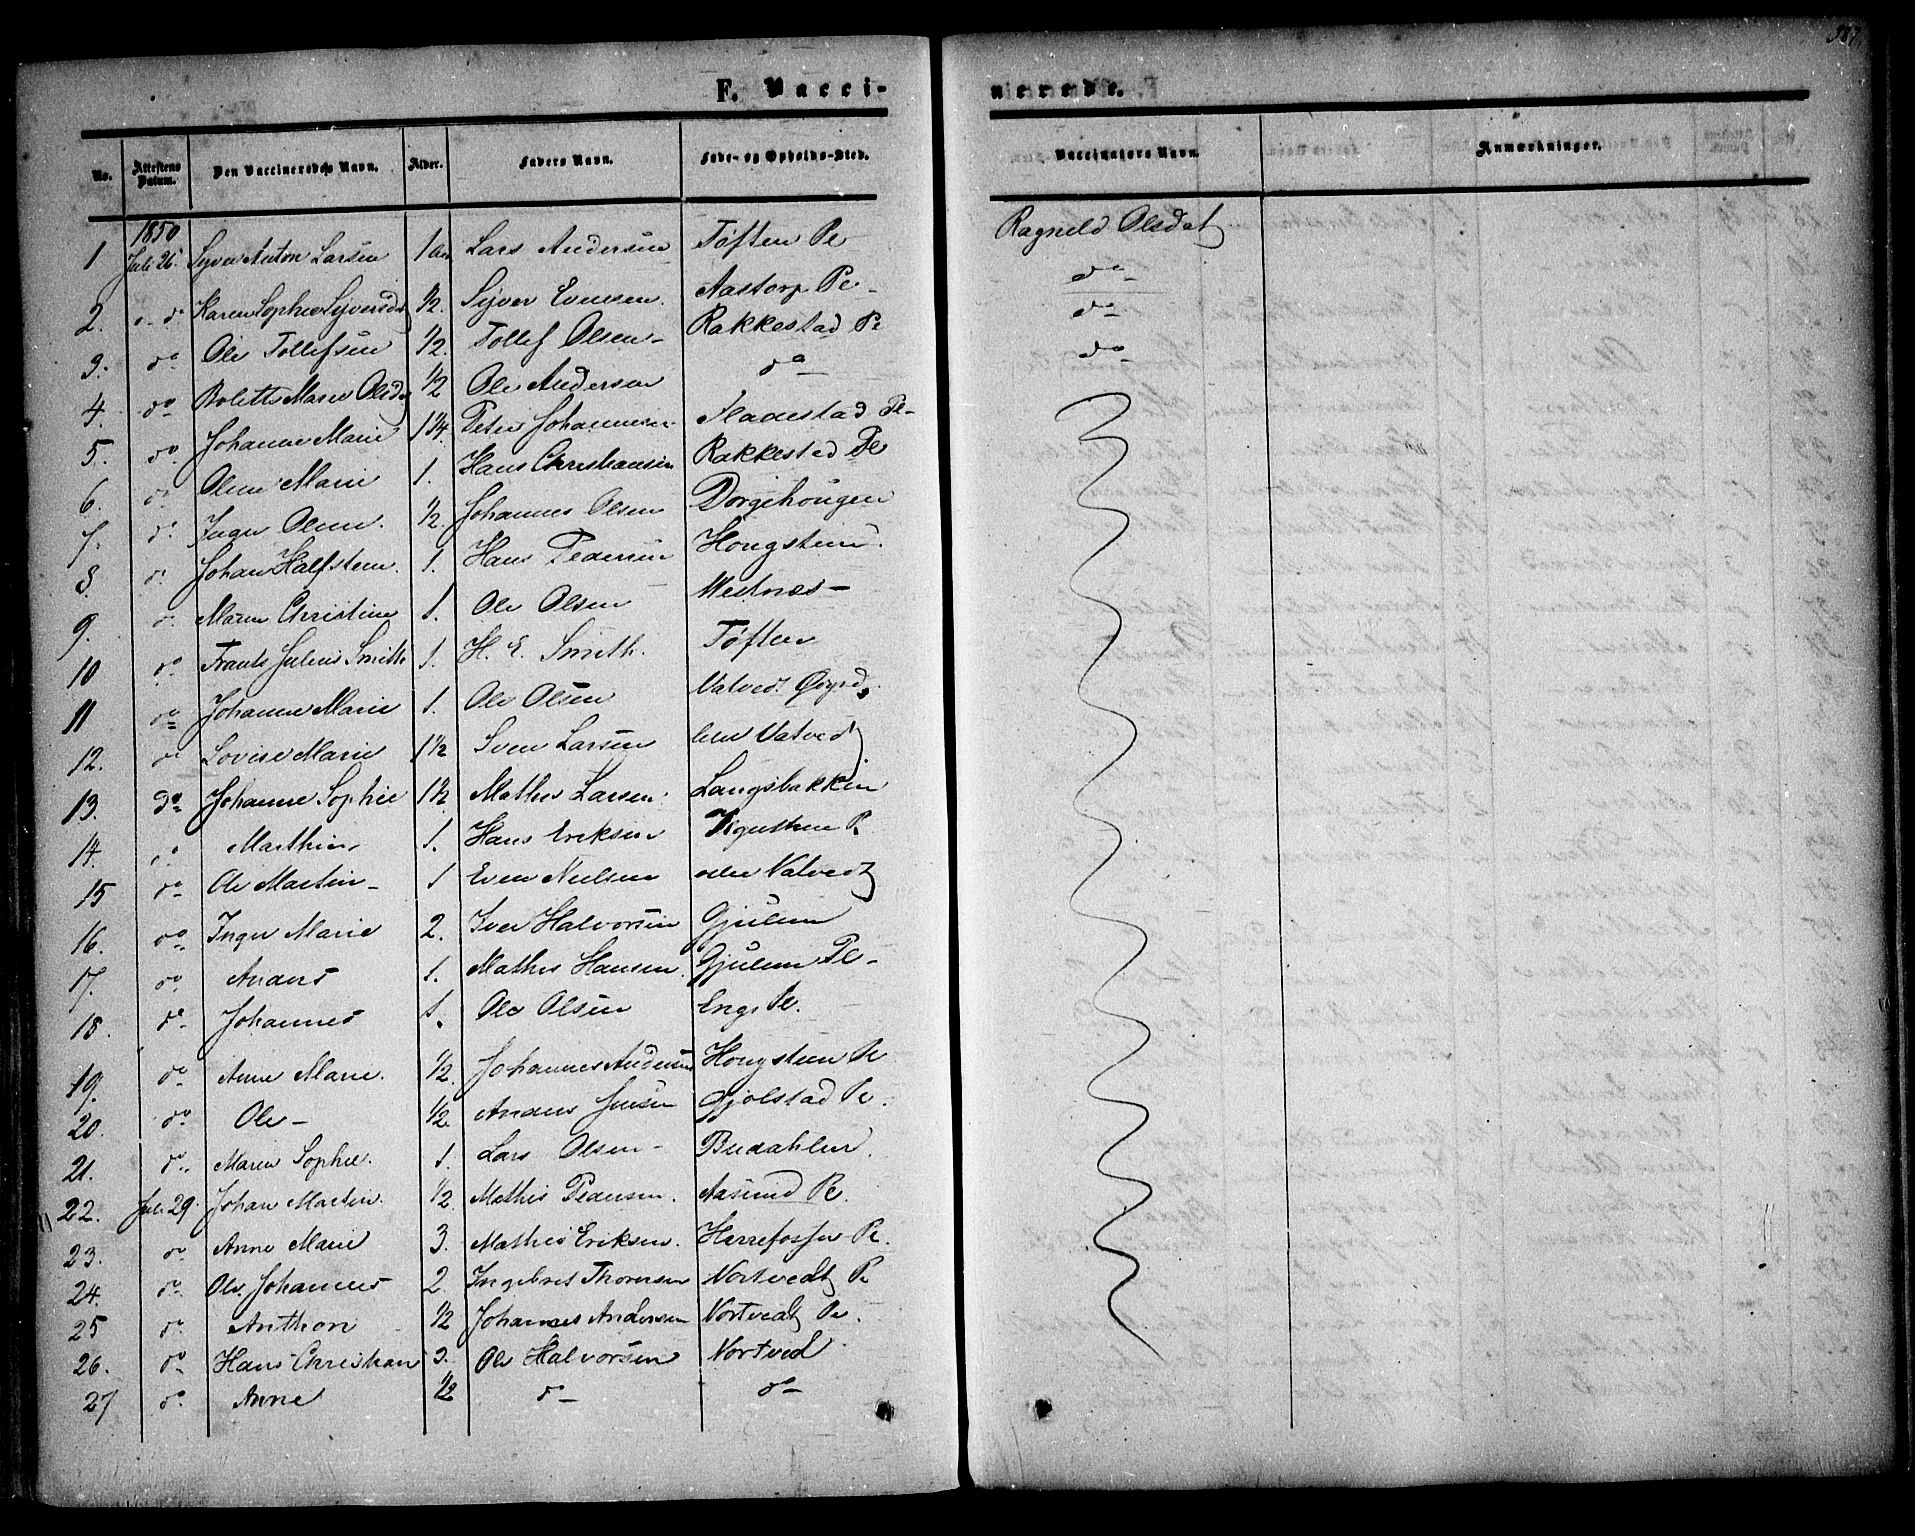 387.
F. Vacci- nerede.
No. Attestens Datum. Den Vaccineredes Navn. Alder. Faders Navn. Føde- og Opholds-Sted. Vaccinators Navn. Anmærkninger.
1850
1 Juli 26 Syver Anton Larsen 1 Lars Andersen Tøften Pe Ragneld Olsdat
2. do Karen Sophie Syversd 1/2. Syver Evensen. Aastorp Pe- do
3. do Ole Tollefsen 1/2. Tollef Olsen- Rakkestad Pe do
4. do Bolette Marie Olsd 1/2 Ole Andersen do do
5. do Johanne Marie 1 1/4. Peter Johannesen Pe-
6. do Oline Marie 1. Hans Christiansen Rakkestad Pe
7. do Inger Oline. 1/2. Johannes Olsen Dorgehougen
8. do Johan Halfsteen. 1. Hans Pedersen Hougsteen.
9. do Maren Christine 1. Ole Olsen Westnæs-
10 do Frants Julius Smith 1. H. E. Smith. Tøften
11 do Johanne Marie 1. Ole Olsen Vatvedt
12. do Lovise Marie 1 1/2 Sven Larsen Vatvedt
13. do Johanne Sophie 1 1/2 Mathis Larsen. Langsbakken
14. do Marthin 1. Hans Eriksen P.
15 do Ole Martin- 1 Even Nielsen Vatvedt
16. do Inger Marie 2. Iver Halvorsen Gjulem
17. do Anders 1. Mathis Hansen. Gjulem Pe-
18. do Johannes 1. Ole Olsen Eng Pe.
19. do Anne Marie. 1/2. Johannes Andersen Hougsteen Pe
20. do Ole- 1/2 Anders Jensen Gjølstad Pe.
21. do Maren Sophie. 1. Lars Olsen- Budahlen.
22. Juli 29. Johan Martin. 1/2 Mathis Pedersen. Aasund Pe.
23. do Anne Marie 3. Mathis Eriksen. Herrefossen Pe.
24. do Ole Johannes 2. Ingebret Thoresen Nortvedt Pe
25 do Anthon 1/2 Johannes Andersen Nortvedt Pe.
26. do Hans Christian 3. Ole Halvorsen Nortved
27 do Anne 1/2 do- do-